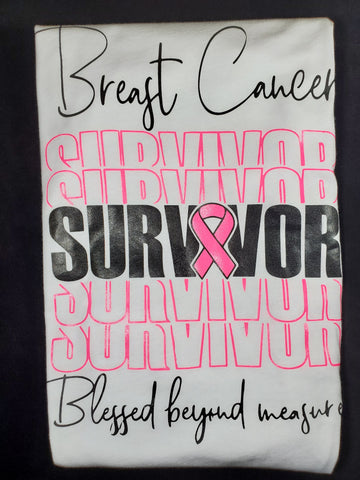 Breast Cancer
SURVIVOR
SURVIVOR
SURVIVOR
SURVIVOR
SURVIVOR
Blessed beyond measure